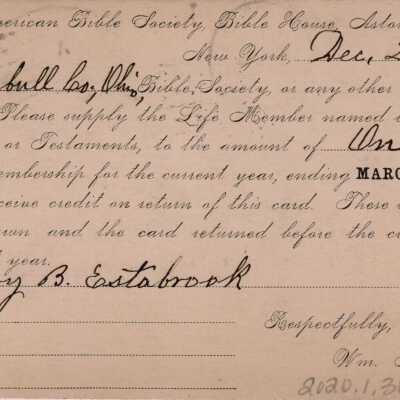 merican Bible Society, Bible House, Astor
New York, Dec. 2
bull Co., Ohio, Bible Society, or any other
Please supply the Life Member named
or Testaments, to the amount of On
embership for the current year, ending MARC
ceive credit on return of this card. These
wn and the card returned before the c
year.
y B. Estabrook
Respectfully,
Wm.
2020.1.3